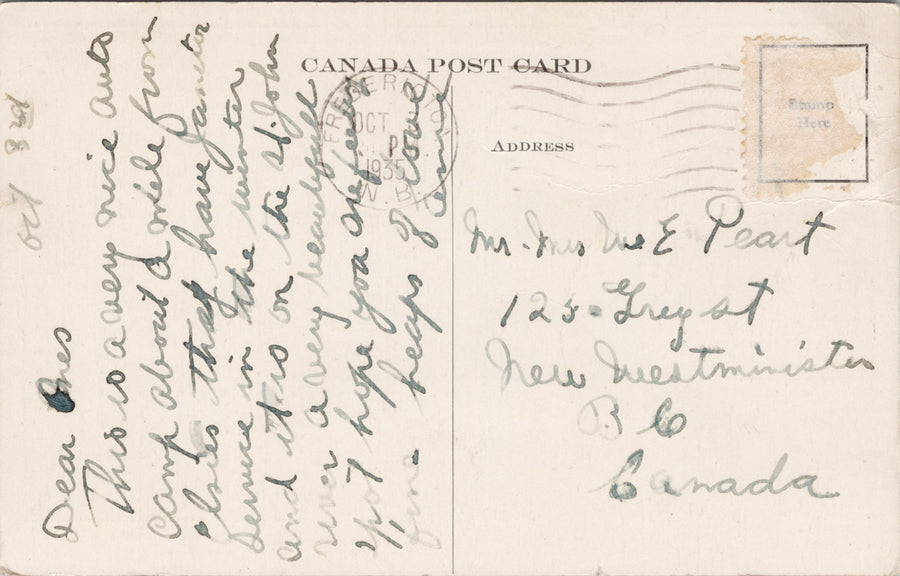 CANADA POST CARD
ADDRESS
Stamp
Here
FREDERICTON
OCT
P
1935
N.B.
Oct 3rd
Dear Ones
This is a very nice auto
camp about a mile from
Janeter
service in the winter
and it is on the St. John
river a very beautyfull
spot hope you are feeling
fine heaps of love
Mr. Mrs E Peart
123 - Grey st
New Westminister
B C
Canada